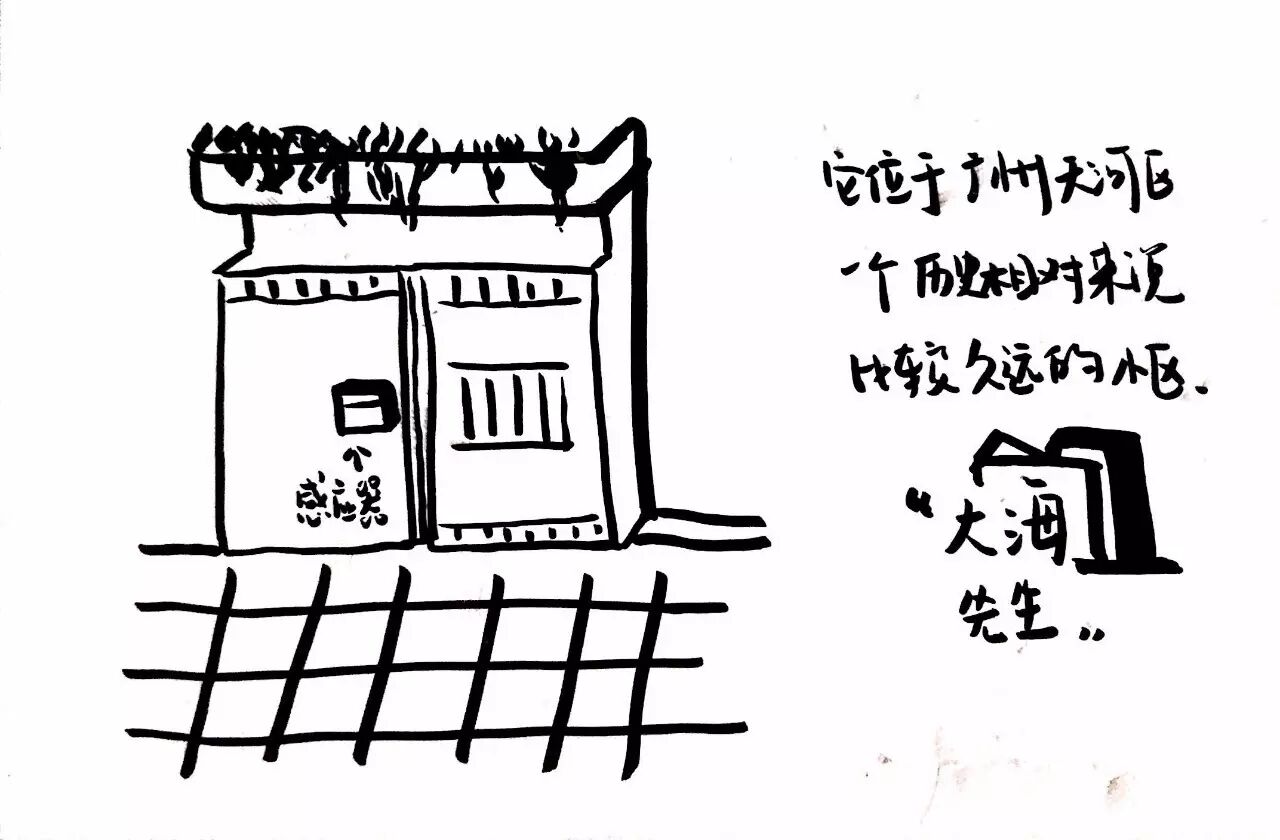 它位于广州天河区
一个历史相对来说
比较久远的小区.
↑
感应器
"大海
先生"